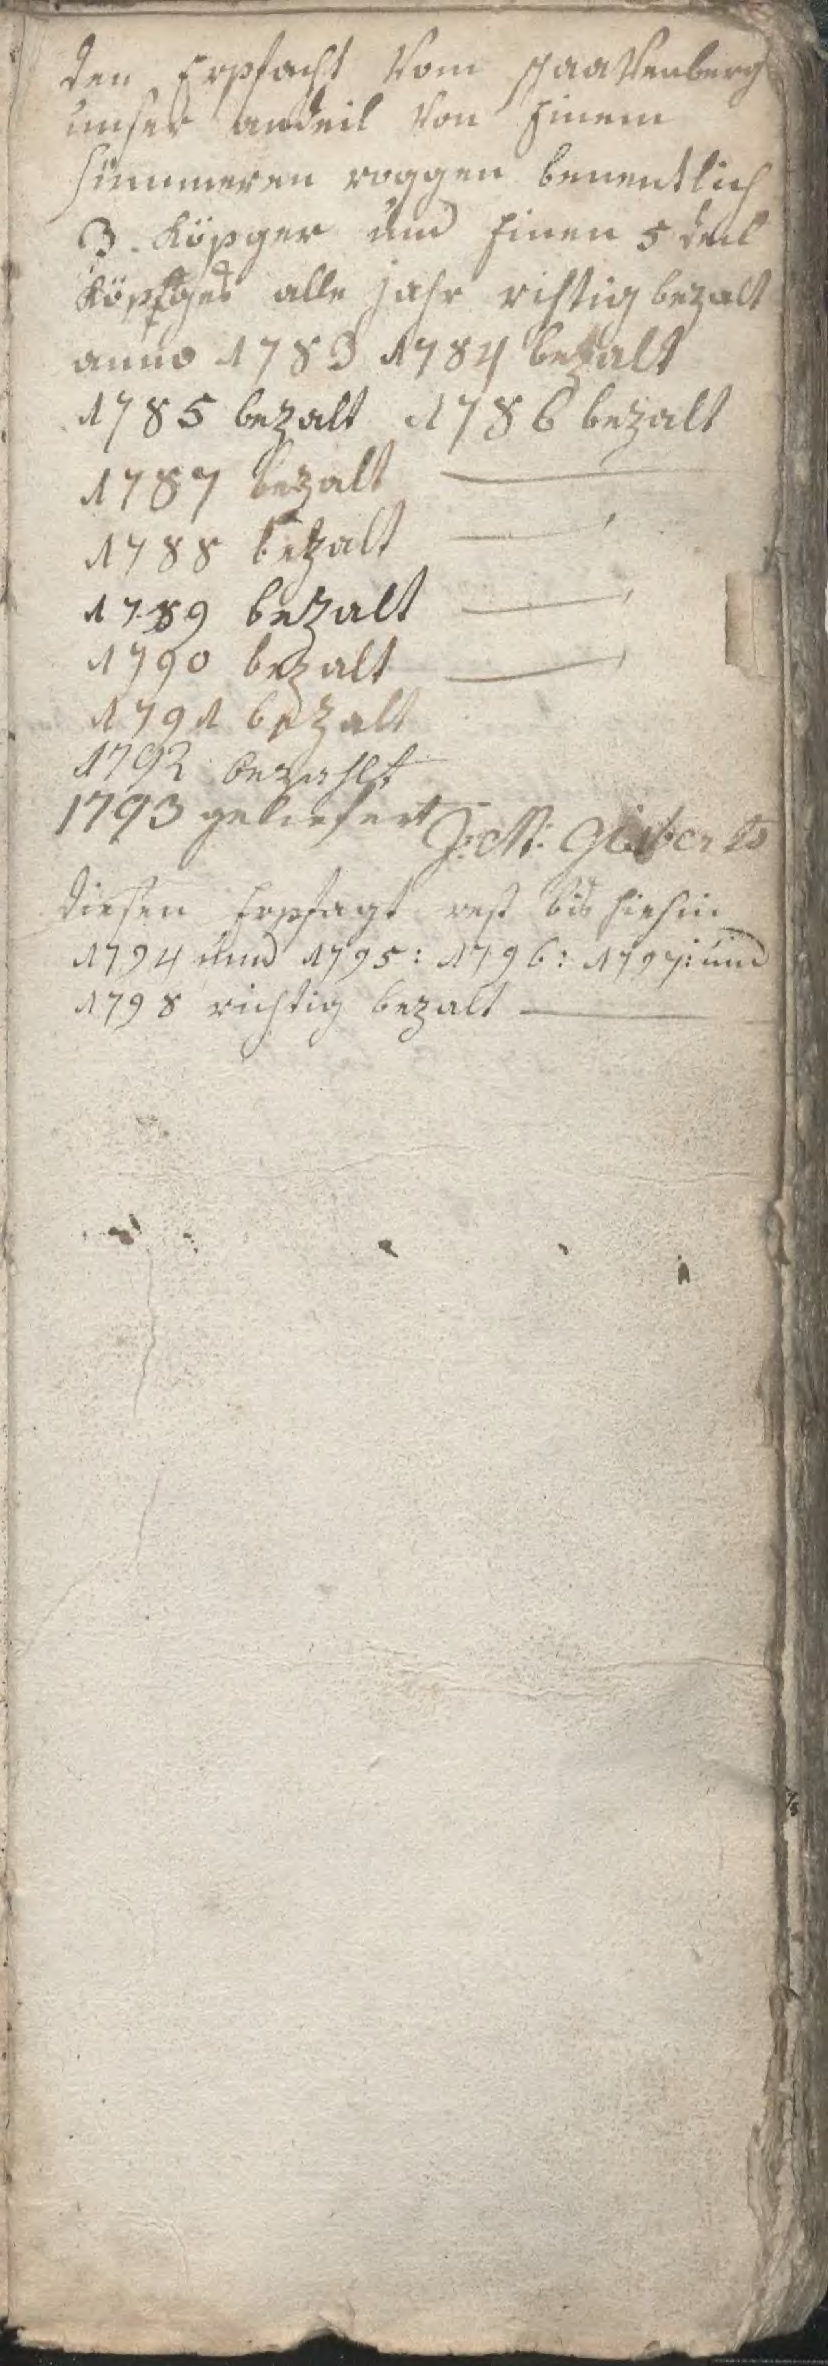 den Erpfacht Vom schaaVenberg
unser andeil Von Einem
Sümmeren roggen benentlich
3. Köpger und Einen 5 deil
Köpfges alle jahr richtig bezalt
anno 1783 1784 bezalt
1785 bezalt 1786 bezalt
1787 bezalt
1788 bezalt
1789 bezalt
1790 bezalt
1791 bezalt
1792 bezahlt
1793 geliefert J: M:
diesen Erpfagt rest bis hiehin
1794 und 1795: 1796: 1797: und
1798 richtig bezalt